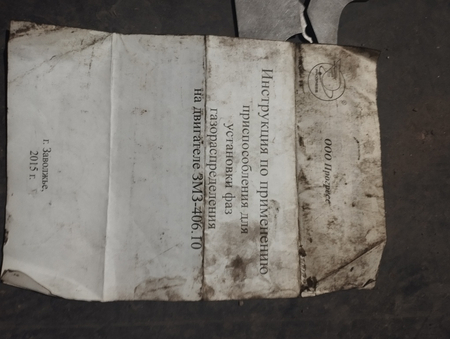 ООО Прогресс
Инструкция по применению
приспособления для
установки фаз
газораспределения
на двигателе ЗМЗ-406.10
г. Заволжье.
2015 г.